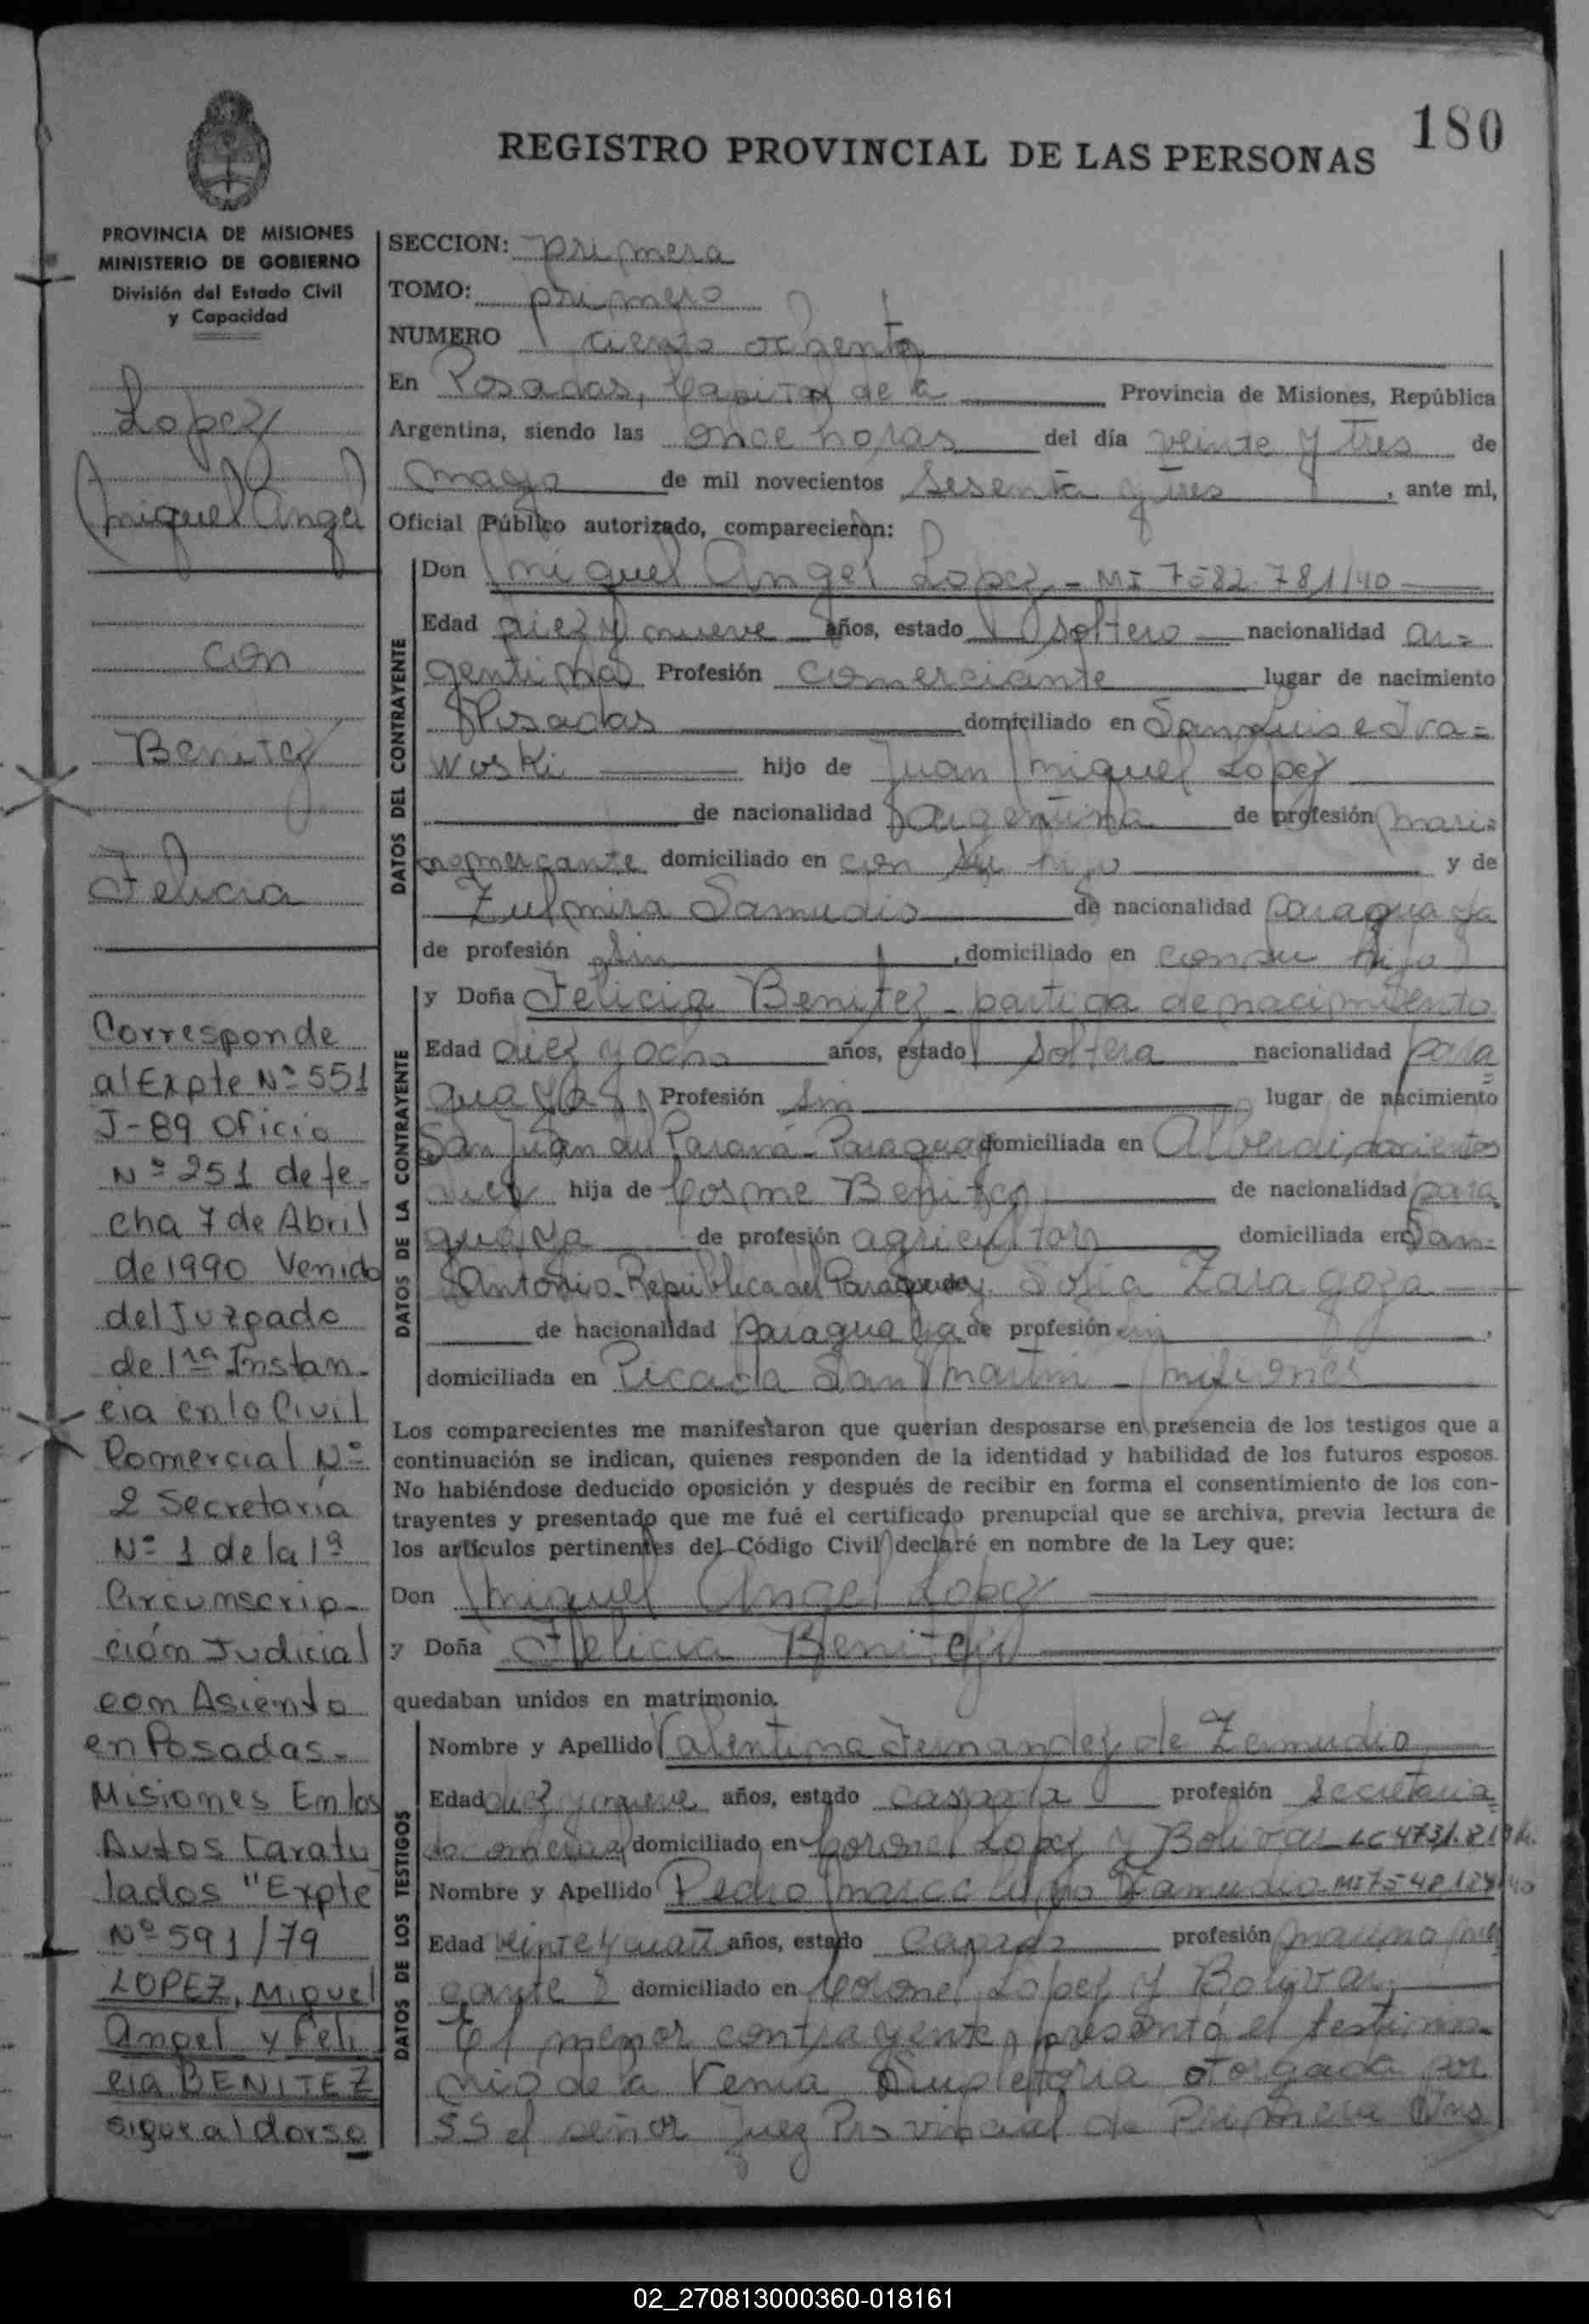 180
REGISTRO PROVINCIAL DE LAS PERSONAS
PROVINCIA DE MISIONES
MINISTERIO DE GOBIERNO
División del Estado Civil
y Capacidad
Lopez
Miguel Angel
con
Benitez
Felicia
Corresponde
al Expte Nº 551
J-89 Oficio
Nº 251 de fe-
cha 7 de Abril
de 1990 Venido
del Juzgado
de 1ra Instan-
cia en lo Civil
Comercial Nº
2 Secretaría
Nº 1 de la 1ª
Circunscrip-
ción Judicial
com Asiento
en Posadas-
Misiones En los
Autos Caratu
lados "Expte
Nº 591/79
LOPEZ, Miguel
Angel y Feli
cia BENITEZ
sigue al dorso
SECCION: primera
TOMO: primero
NUMERO ciento ochenta
En Posadas, Capital de la Provincia de Misiones, República
Argentina, siendo las once horas del día veinte y tres de
mayo de mil novecientos sesenta y tres, ante mi,
Oficial Público autorizado, comparecieron:
DATOS DEL CONTRAYENTE
Don Miguel Angel Lopez - MI 7582.781/40
Edad diez y nueve años, estado soltero nacionalidad ar=
gentina Profesión comerciante lugar de nacimiento
Posadas domiciliado en San Luis e Iva=
woski hijo de Juan Miguel Lopez
de nacionalidad argentina de profesión mari=
no mercante domiciliado en con su hijo y de
Zulmira Samudio de nacionalidad paraguaya
de profesión sin, domiciliado en con su hijo
DATOS DE LA CONTRAYENTE
y Doña Felicia Benitez - partida de nacimiento
Edad diez y ocho años, estado soltera nacionalidad para=
guaya Profesión sin lugar de nacimiento
San Juan del Paraná - Paraguay domiciliada en Alberdi, docientos
diez hija de Cosme Benitez de nacionalidad para
guaya de profesión agricultor domiciliada en San=
Antonio - República del Paraguay y Sofia Zaragoza
de nacionalidad paraguaya de profesión sin,
domiciliada en Picada San Martin - Misiones
Los comparecientes me manifestaron que querían desposarse en presencia de los testigos que a
continuación se indican, quienes responden de la identidad y habilidad de los futuros esposos.
No habiéndose deducido oposición y después de recibir en forma el consentimiento de los con-
trayentes y presentado que me fué el certificado prenupcial que se archiva, previa lectura de
los artículos pertinentes del Código Civil declaré en nombre de la Ley que:
Don Miguel Angel Lopez
y Doña Felicia Benitez
quedaban unidos en matrimonio.
DATOS DE LOS TESTIGOS
Nombre y Apellido Valentina Fernandez de Zamudio
Edad diez y nueve años, estado casada profesión secretaria
comercial domiciliado en Coronel Lopez y Bolivar LC 4731.819
Nombre y Apellido Pedro Zamudio - MI 7548124/40
Edad veinte y cuatro años, estado casado profesión marino mer
cante domiciliado en Coronel Lopez y Bolivar.
El menor contrayente, presentó el testimo=
nio de la Venia Supletoria otorgada por
SS el señor Juez Provincial de Primera Ins
02_270813000360-018161